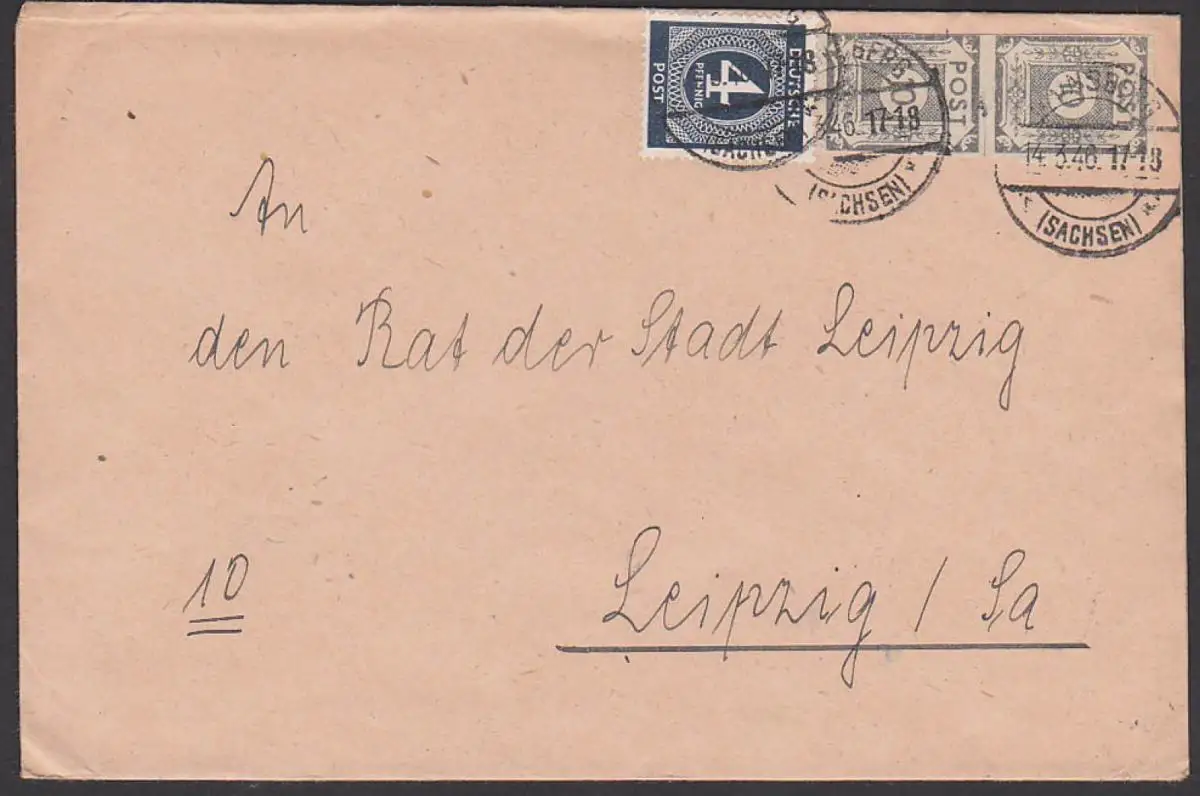 DEUTSCHE
4
PFENNIG
POST
10
POST
10
POST
3.46. 17-18
(SACHSEN)
14.3.46. 17-18
(SACHSEN)
An
den Rat der Stadt Leipzig
10
Leipzig / Sa